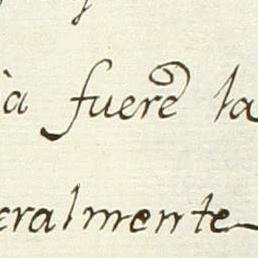 à fuere la
eralmente